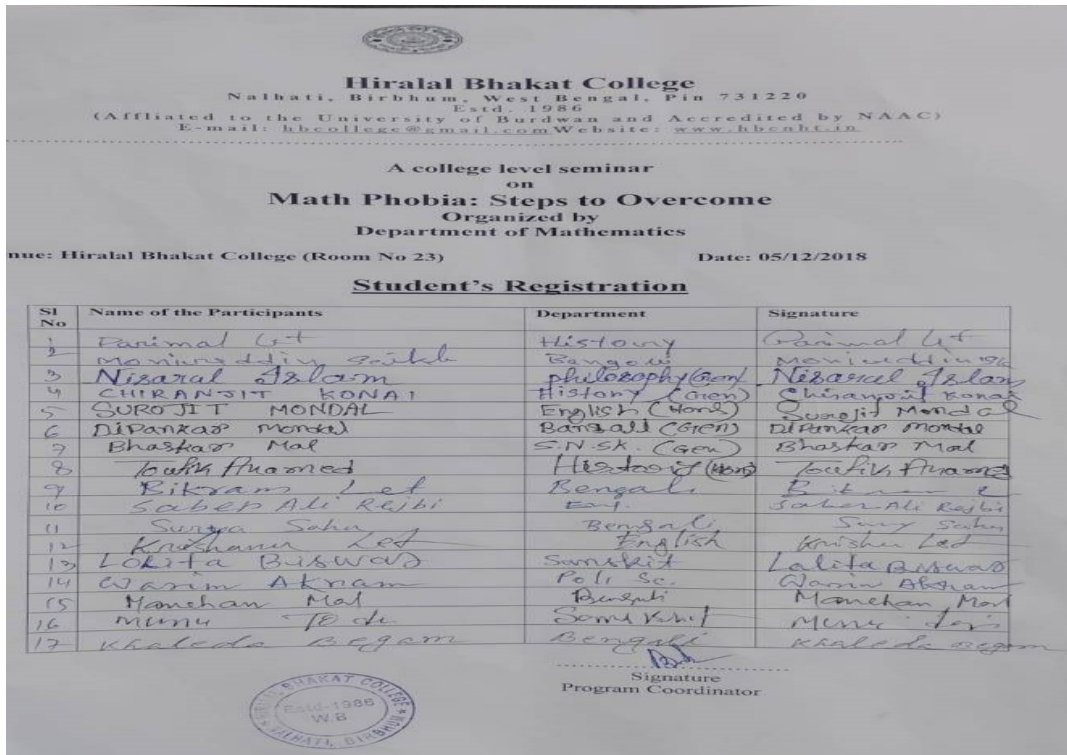 Hiralal Bhakat College
Nalhati, Birbhum, West Bengal, Pin 731220
Estd. 1986
(Affiliated to the University of Burdwan and Accredited by NAAC)
E-mail: hbcollege@gmail.com Website: www.hbcnht.in
A college level seminar
on
Math Phobia: Steps to Overcome
Organized by
Department of Mathematics
nue: Hiralal Bhakat College (Room No 23) Date: 05/12/2018
Student's Registration
Sl No Name of the Participants Department Signature
1 Parimal Let History Parimal Let
2 Moniureddin
3 Nisaral Islam philosophy (Gen) Nisaral Islam
4 CHIRANJIT KONAI History (Gen) Chiranjit Konai
5 SUROJIT MONDAL English (Hons) Surojit Mondal
6 Dipankar Mondal Bangali (Gen) Dipankar Mondal
7 Bhaskar Mal S.N.SK. (Gen) Bhaskar Mal
8 Toufik Ahamed History (Hons) Toufik Ahamed
9 Bikram Let Bengali
10 Saber Ali Rejbi Saber Ali Rejbi
11 Surya Saha Bengali Saha
12 Krishanu Let English Let
13 Lokita Biswas Sanskit Lalita Biswas
14 Wasim Akram Poli Sc. Wasim Akram
15 Monchan Mal Mal
16 Munu
17 Khaleda Begam Bengali Khaleda Begam
Signature
Program Coordinator
HIRALAL BHAKAT COLLEGE
Estd-1986
W.B
NALHATI, BIRBHUM